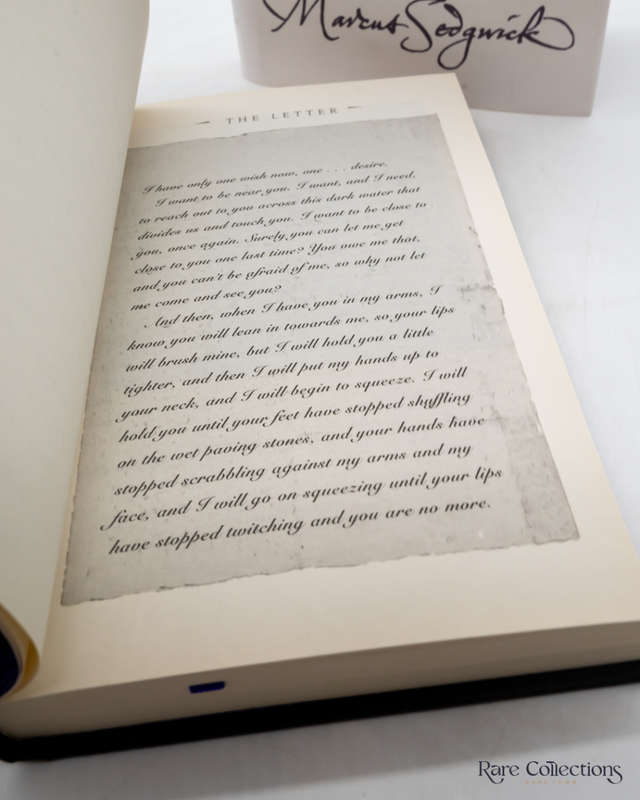 Marcus Sedgwick
THE LETTER
I have only one wish now, one . . . desire.
I want to be near you. I want, and I need,
to reach out to you across this dark water that
divides us and touch you. I want to be close to
you, once again. Surely you can let me get
close to you one last time? You owe me that,
and you can't be afraid of me, so why not let
me come and see you?
And then, when I have you in my arms, I
know you will lean in towards me, so your lips
will brush mine, but I will hold you a little
tighter, and then I will put my hands up to
your neck, and I will begin to squeeze. I will
hold you until your feet have stopped shuffling
on the wet paving stones, and your hands have
stopped scrabbling against my arms and my
face, and I will go on squeezing until your lips
have stopped twitching and you are no more.
Rare Collections